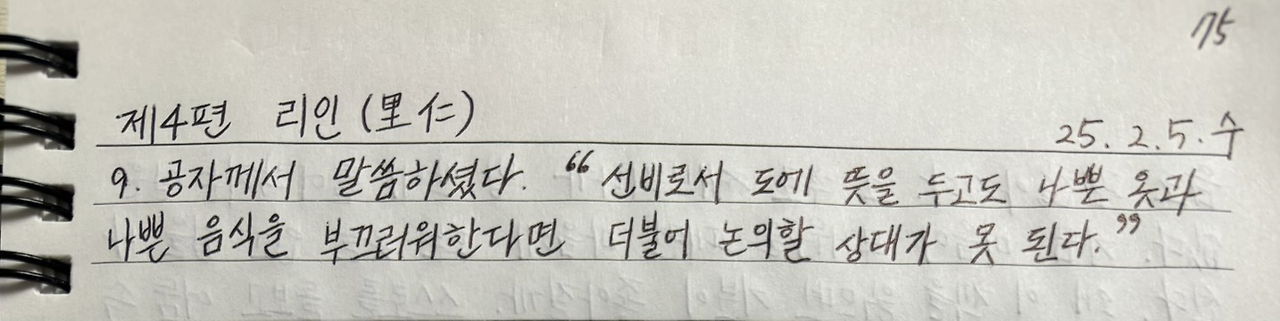 75
제4편 리인 (里仁)
25. 2. 5. 수
9. 공자께서 말씀하셨다. “선비로서 도에 뜻을 두고도 나쁜 옷과
나쁜 음식을 부끄러워한다면 더불어 논의할 상대가 못 된다.”